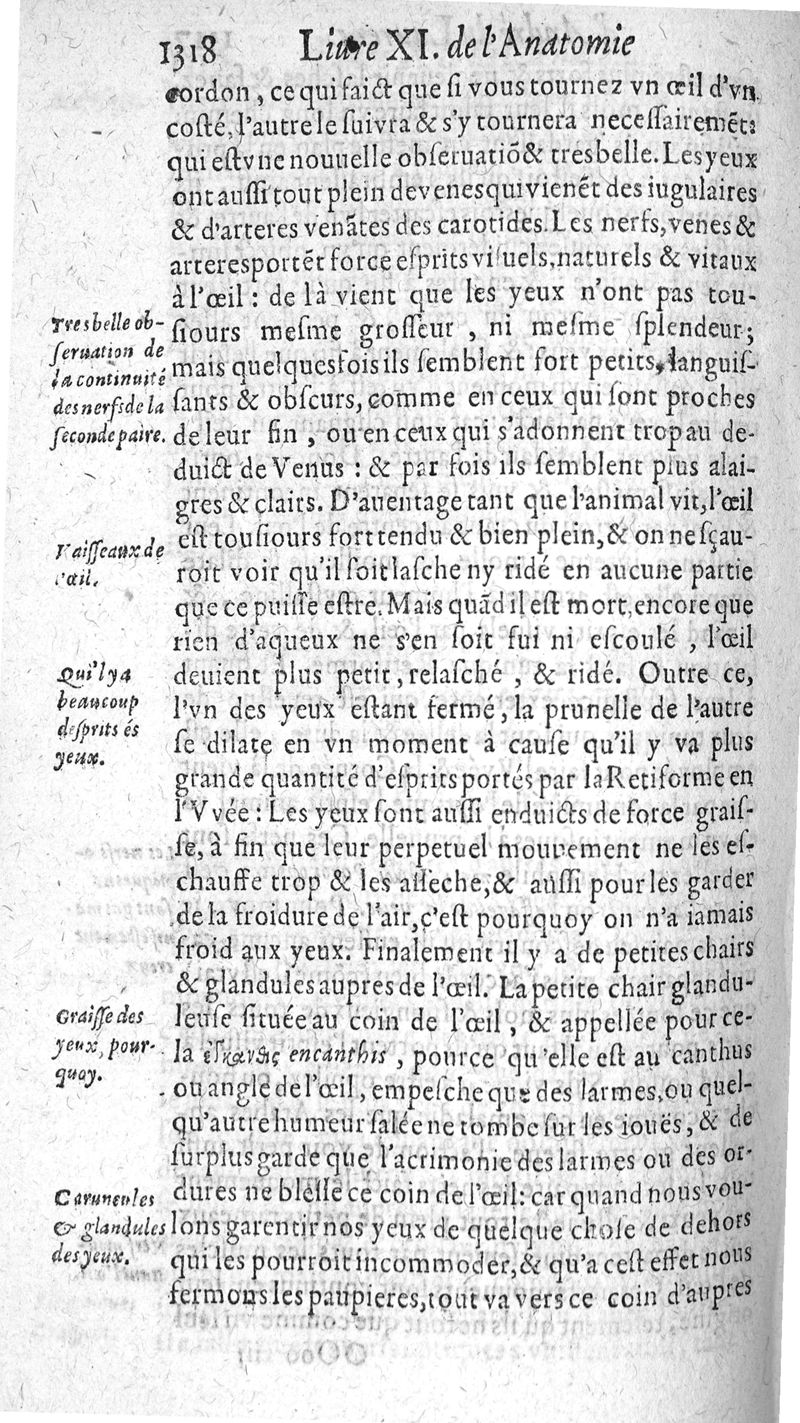 1318 Liure XI. de l'Anatomie
cordon, ce qui faict que ſi vous tournez vn œil d'vn
coſté, l'autre le ſuivra & s'y tournera neceſſairemẽt:
qui eſt vne nouuelle obſeruatiõ & tresbelle. Les yeux
ont auſſi tout plein de venes qui vienẽt des iugulaires
& d'arteres venãtes des carotides. Les nerfs, venes &
arteres portẽt force eſprits viſuels, naturels & vitaux
à l'œil : de là vient que les yeux n'ont pas tou-
ſiours meſme groſſeur , ni meſme ſplendeur;
mais quelquesfois ils ſemblent fort petits, languiſ-
ſants & obſcurs, comme en ceux qui ſont proches
de leur fin , ou en ceux qui s'adonnent trop au de-
duict de Venus : & par fois ils ſemblent plus alai-
gres & clairs. D'auentage tant que l'animal vit, l'œil
eſt touſiours fort tendu & bien plein, & on ne ſçau-
roit voir qu'il ſoit laſche ny ridé en aucune partie
que ce puiſſe eſtre. Mais quãd il eſt mort, encore que
rien d'aqueux ne s'en ſoit fui ni eſcoulé , l'œil
deuient plus petit, relaſché , & ridé. Outre ce,
l'vn des yeux eſtant fermé, la prunelle de l'autre
ſe dilate en vn moment à cauſe qu'il y va plus
grande quantité d'eſprits portés par la Retiforme en
l'Vvée : Les yeux ſont auſſi enduicts de force graiſ-
ſe, à fin que leur perpetuel mouuement ne les eſ-
chauffe trop & les aſſeche, & auſſi pour les garder
de la froidure de l'air, c'eſt pourquoy on n'a iamais
froid aux yeux. Finalement il y a de petites chairs
& glandules aupres de l'œil. La petite chair glandu-
leuſe ſituée au coin de l'œil , & appellée pour ce-
la ἐγκανθὶς encanthis , pource qu'elle eſt au canthus
ou angle de l'œil, empeſche que des larmes, ou quel-
qu'autre humeur ſalée ne tombe ſur les iouës, & de
ſurplus garde que l'acrimonie des larmes ou des or-
dures ne bleſſe ce coin de l'œil: car quand nous vou-
lons garentir nos yeux de quelque choſe de dehors
qui les pourroit incommoder, & qu'a ceſt effet nous
fermons les paupieres, tout va vers ce coin d'aupres
Tresbelle ob-
ſeruation de
la continuité
des nerfs de la
ſeconde paire.
Vaiſſeaux de
l'œil.
Qu'il y a
beaucoup
d'eſprits és
yeux.
Graiſſe des
yeux, pour-
quoy.
Caruncules
& glandules
des yeux.